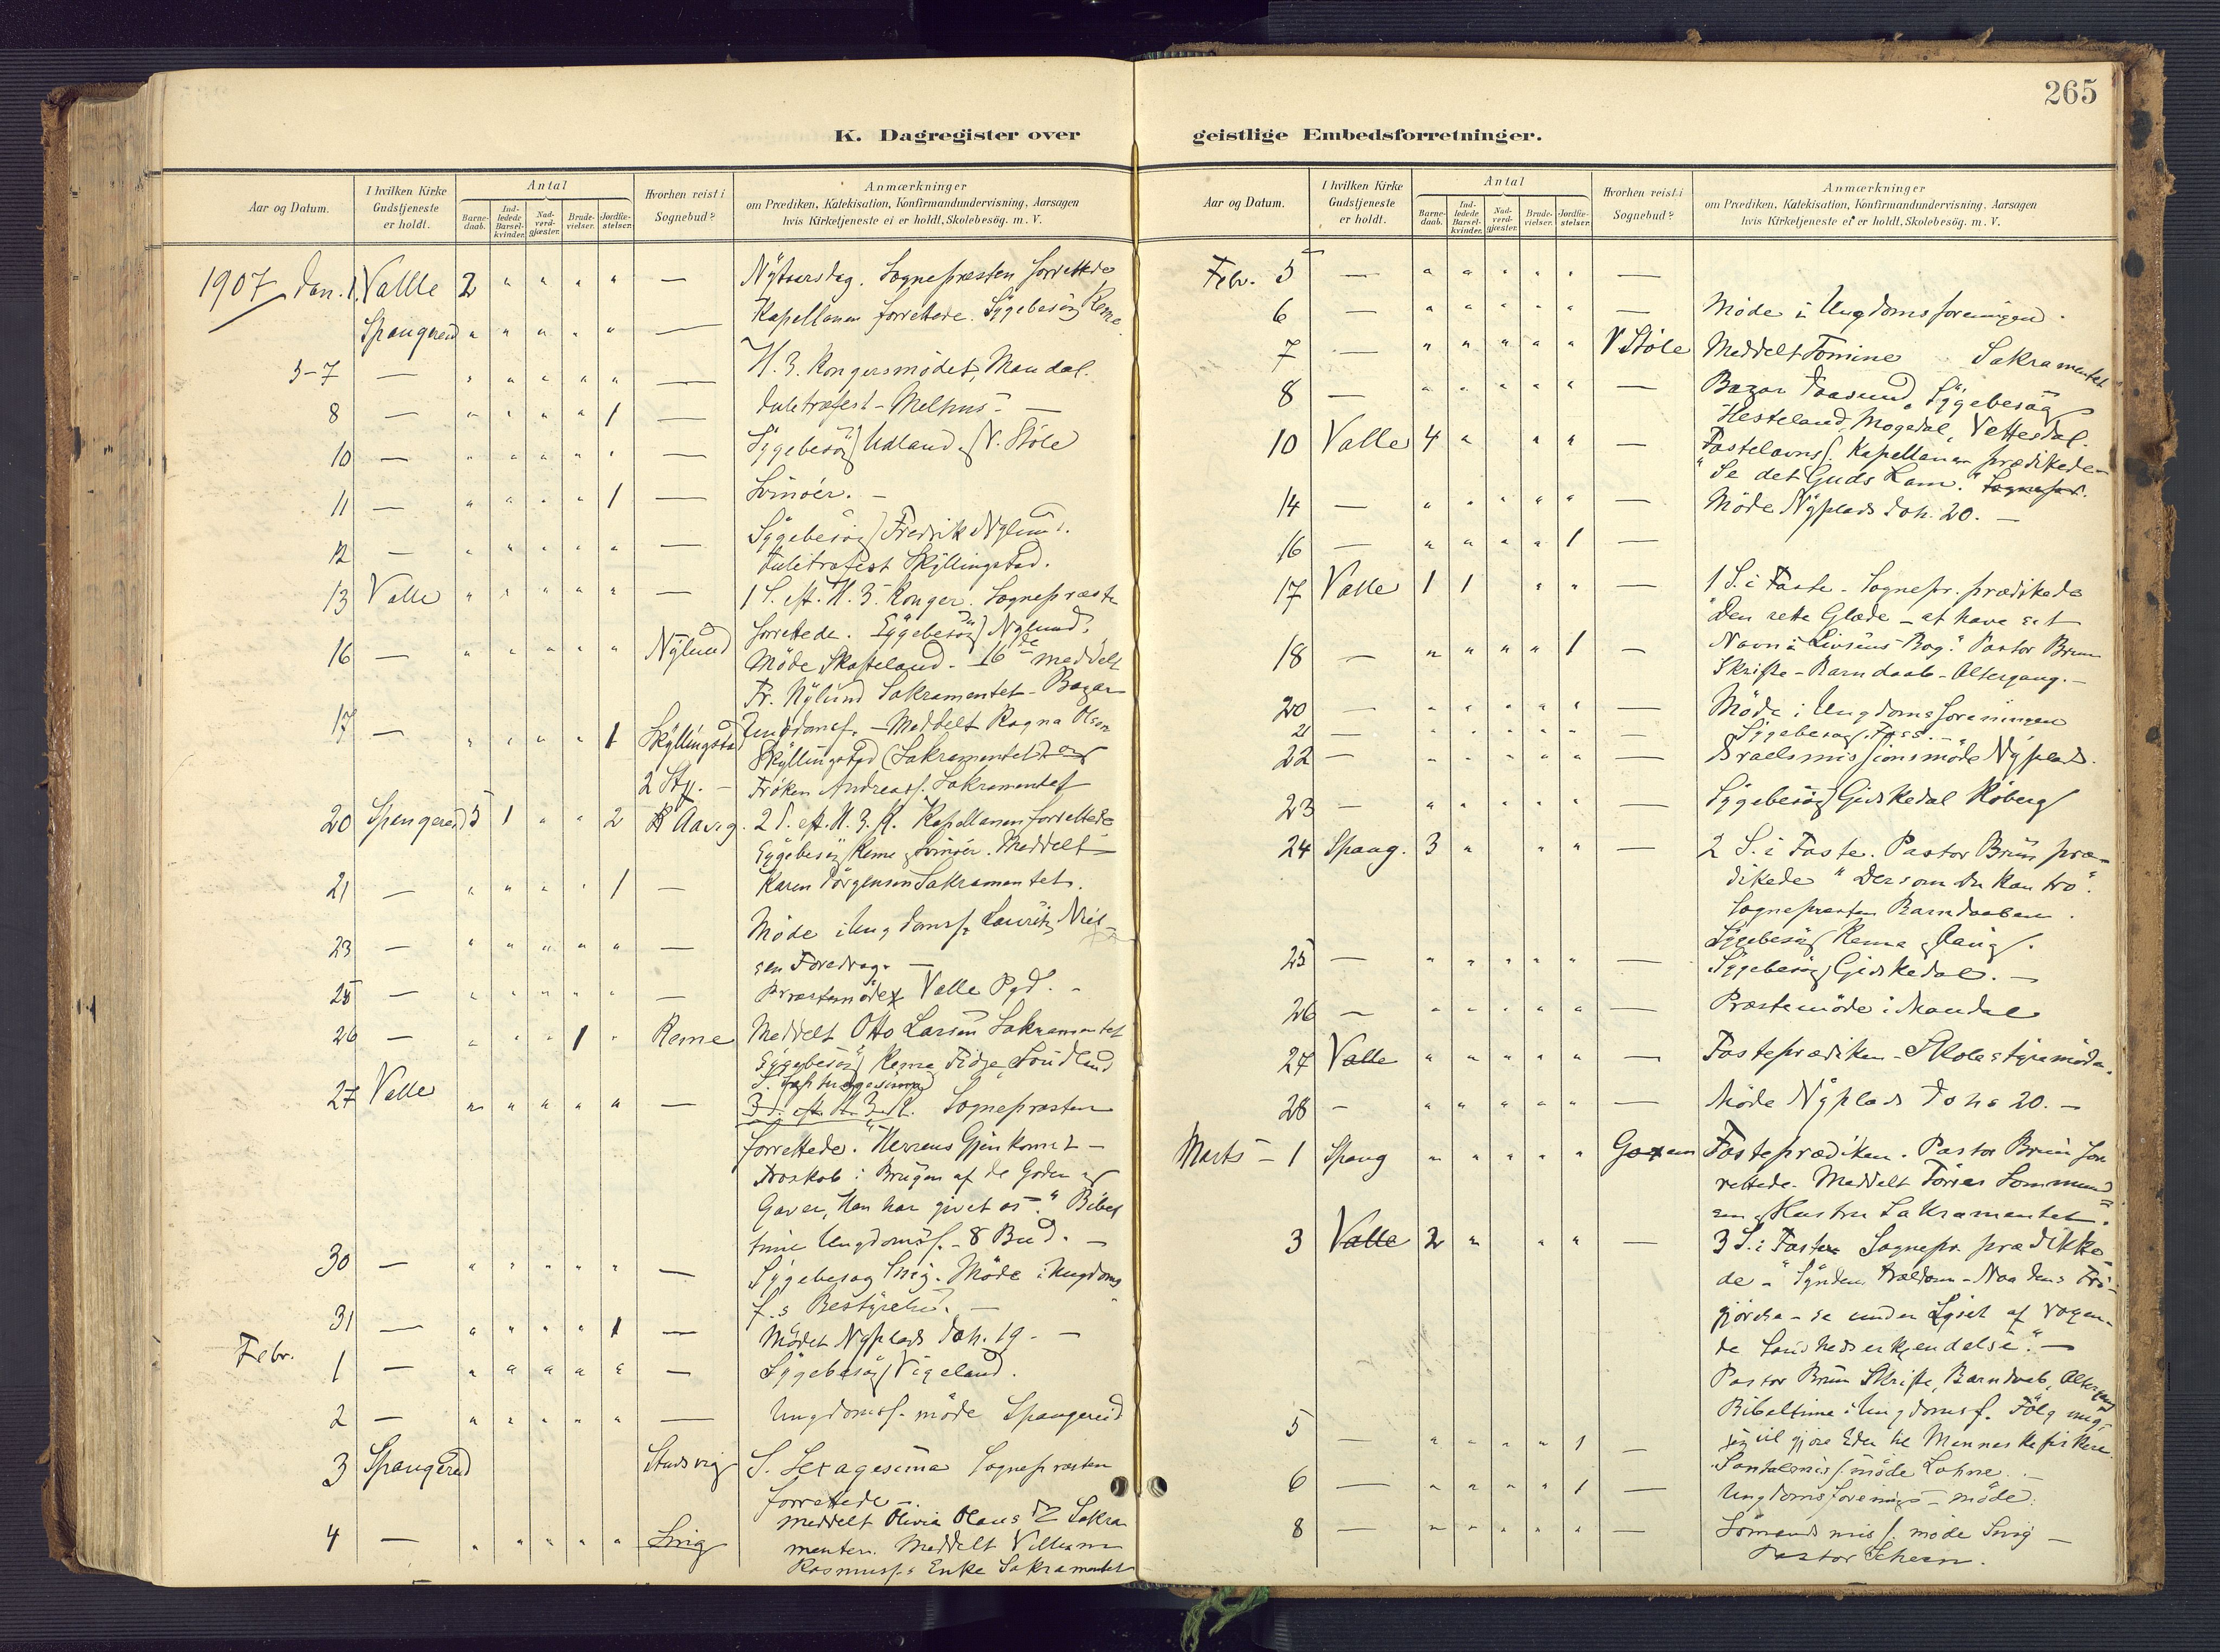 265
K. Dagregister over
Aar og Datum.
I hvilken Kirke Gudstjeneste er holdt.
Antal
Barne-daab.
Ind-ledede Barsel-kvinder.
Nad-verd-gjæster.
Brude-vielser.
Jordfæ-stelser.
Hvorhen reist i Sognebud?
Anmærkninger
om Prædiken, Katekisation, Konfirmandundervisning, Aarsagen
hvis Kirketjeneste ei er holdt, Skolebesög. m. V.
1907 Jan. 1. Vallle 2 " " " " — Nÿtaarsdag. Sognepresten forrettede
Spangereid " " " " " — Kapellanen forrettede. Sÿgebesög Reme.
5-7 — " " " " " — H. 3. Kongersmödet, Mandal.
8 — " " " " 1 — Juletræfest - Melhus. —
10 — " " " " " — Sÿgebesög Udland, V. Stöle
11 — " " " " 1 — Svinöer. —
12 — " " " " " — Sÿgebesög Fredrik Nylund.
Juletræfest Skÿllingstad.
13 Valle " " " " " — 1 S. eft. H. 3. Konger. Sognepræsten
forrettede. Sÿgebesög Nylund,
16 — " " " " " Nÿlund Möde Skofteland. - 16de meddelt
Fr. Nÿlund Sakramentet - Bazar
17 — " " " " 1 Skÿllingstad Ungdomsf. - Meddelt Ragna Olsen
Skÿllingstad Sakramentet og
2 Stk. — Fröken Andreass. Sakramentet
20 Spangereid 5 1 " " 2 Aavig. 2 S. eft. H. 3. K. Kapellanen forrettede
Sÿgebesög Reme, Svinöer. Meddelt
21 — " " " " 1 — Karen Jörgensen Sakramentet.
23 — " " " " " — Möde i Ungdomsf. Lauritz Niel-
sen Foredrag. —
25 — " " " " " — Præstemöde Valle Pgd. -
26 — " " " 1 " Reme Meddelt Otto Larsen Sakramentet
Sÿgebesög Reme,
27 Valle " " " " " — S. Septuagesima
3 S. eft. H. 3. K. Sognepræsten
forrettede. "Herrens Gjenkomst -
Troskab i Brugen af de Goder og
Gaver, Han har givet os." Bibel
time Ungdomsf. - 8 Bud. —
30 — " " " " " — Sÿgebesög Snig. Möde i Ungdoms
f.s Bestÿrelse. —
31 — " " " " 1 — Mödet Nÿplads Joh. 19. —
Febr. 1 — " " " " " — Sÿgebesög Vigeland.
2 — " " " " " — Ungdomsf. möde Spangereid
3 Spangereid Stusvig S. Sexagesima Sognepræsten
forrettede —.
meddelt Olivia Olaus Sakra
4 — " " " " " Snig menter. Meddelt Villum
Rasmuss. Enke Sakramentet
geistlige Embedsforretninger.
Aar og Datum.
I hvilken Kirke Gudstjeneste er holdt.
Antal
Barne-daab.
Ind-ledede Barsel-kvinder.
Nad-verd-gjæster.
Brude-vielser.
Jordfæ-stelser.
Hvorhen reist i Sognebud?
Anmærkninger
om Prædiken, Katekisation, Konfirmandundervisning, Aarsagen
hvis Kirketjeneste ei er holdt, Skolebesög. m. V.
Febr. 5 — " " " " " —
6 — " " " " " — Möde i Ungdomsforeningen.
7 — " " " " " V Stöle Meddelt Tomine Sakramentet
8 — " " " " " — Bazar Sÿgebesög
Hesteland, Mogedal, Vettesdal.
10 Valle 4 " " " — Fastelavnss. Kapellanen prædikede -
"Se det Guds Lam."
14 — " " " " " — Möde Nÿplads Joh. 20. —
16 — " " " " 1 —
17 Valle 1 1 " " — 1 S. i Faste. Sognepr. prædikede
"Den rette Glæde - at have sit
Navn i Livsens Bog." Pastor Brun
18 — " " " " 1 — Skrifte - Barndaab - Altergang. —
20 — " " " " " — Möde i Ungdomsforeningen
21 — Sÿgebesög Foss. —
22 — " " " " " — Israelsmissionsmöde Nÿplads.
23 — " " " " " — Sÿgebesög Gidskedal Röberg
24 Spang. 3 " " " — 2 S. i Faste. Pastor Brun præ-
dikede "Dersom Du kan tro".
Sognepræsten Barndaaben.
Sÿgebesög Reme, Aavig.
25 — " " " " " — Sÿgebesög Gidskedal. —
26 — " " " " " — Præstemöde i Mandal
27 Valle " " " " " — Fasteprædiken - Skolestÿremöde.
28 - " " " " " — Möde Nÿplads Joh. 20. —
Marts - 1 Spang " " " " " Fasteprædiken. Pastor Brun for
rettede. Meddelt Törres Sommund=
sen, Hustru Sakramentet.
3 Valle 2 " " " — 3 S. i Faste Sognepr. prædikke
de - "Sÿndens Trældom - Naadens Fri-
gjörelse - se under Lÿset af vogen-
de Sandhedserkjendelse." —
Pastor Brun Skrifte, Barndaab, Altergang
5 — " " " " 1 — Bibeltime i Ungdomsf. Fölg mig,
jeg vil gjöre Eder til Menneskefiskere.
6 — " " " " 1 — Santalmis. möde Lohne. —
Ungdomsforenings - möde.
8 — " " " " " — Sömandsmis. möde Snig —
Pastor Scheen.